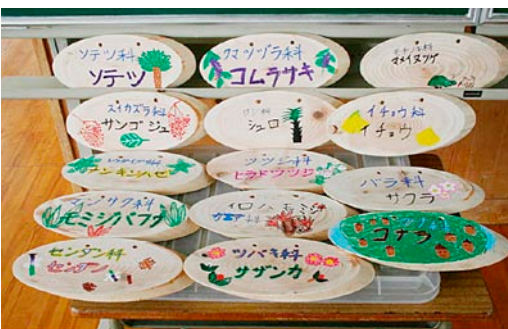 ソテツ科
ソテツ
クマツヅラ科
コムラサキ
モチノキ科
マメイヌツゲ
スイカズラ科
サンゴジュ
シュロ
イチョウ科
イチョウ
ナンキンハゼ
ツツジ科
ヒラドツツジ
バラ科
サクラ
マンサク科
モミジバフウ
イロハモミジ
コナラ
センダン科
センダン
ツバキ科
サザンカ